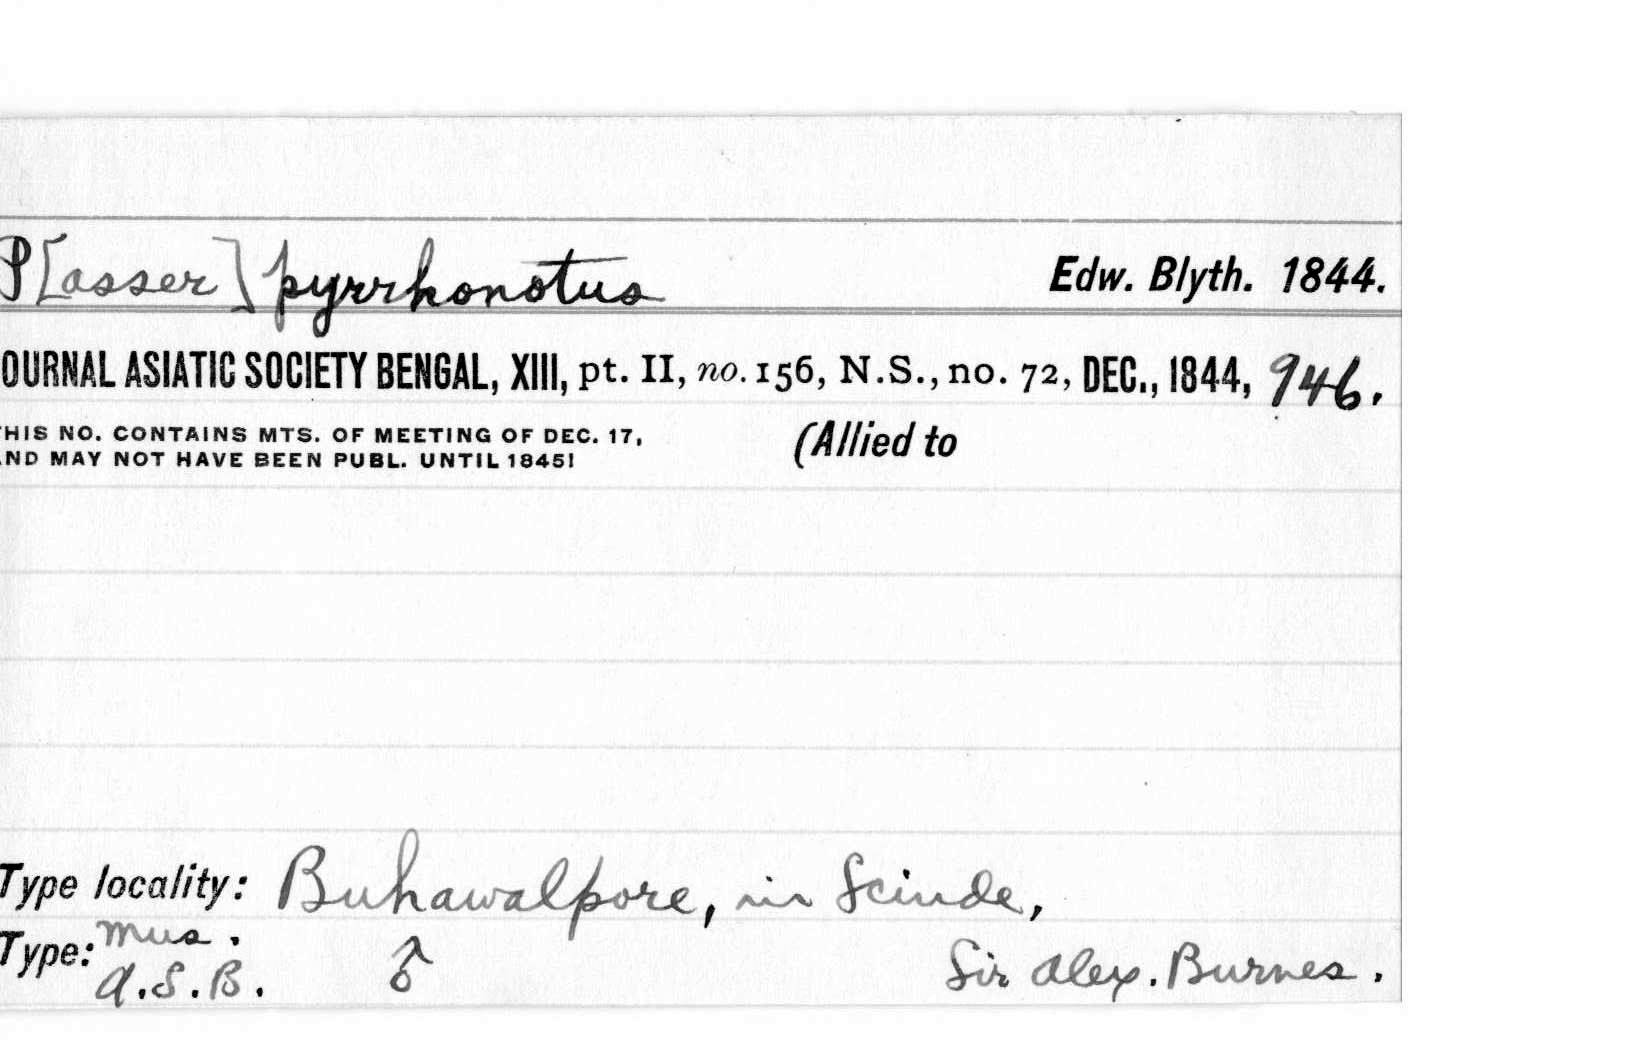 P[asser] pyrrhonotus Edw. Blyth. 1844.
OURNAL ASIATIC SOCIETY BENGAL, XIII, pt. II, no. 156, N.S., no. 72, DEC., 1844, 946.
HIS NO. CONTAINS MTS. OF MEETING OF DEC. 17, (Allied to
ND MAY NOT HAVE BEEN PUBL. UNTIL 1845!
Type locality: Buhawalpore, in Scinde,
Type: Mus. A.S.B. ♂ Sir Alex. Burnes.